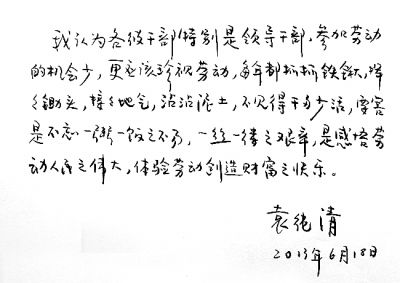 我认为各级干部特别是领导干部,参加劳动
的机会少,更应该珍视劳动,每年都抓抓铁锹,挥
挥锄头,接接地气,沾沾泥土,不见得干多少活,要害
是不忘一粥一饭之不易,一丝一缕之艰辛,是感悟劳
动人民之伟大,体验劳动创造财富之快乐。
袁纯清
2013年6月18日